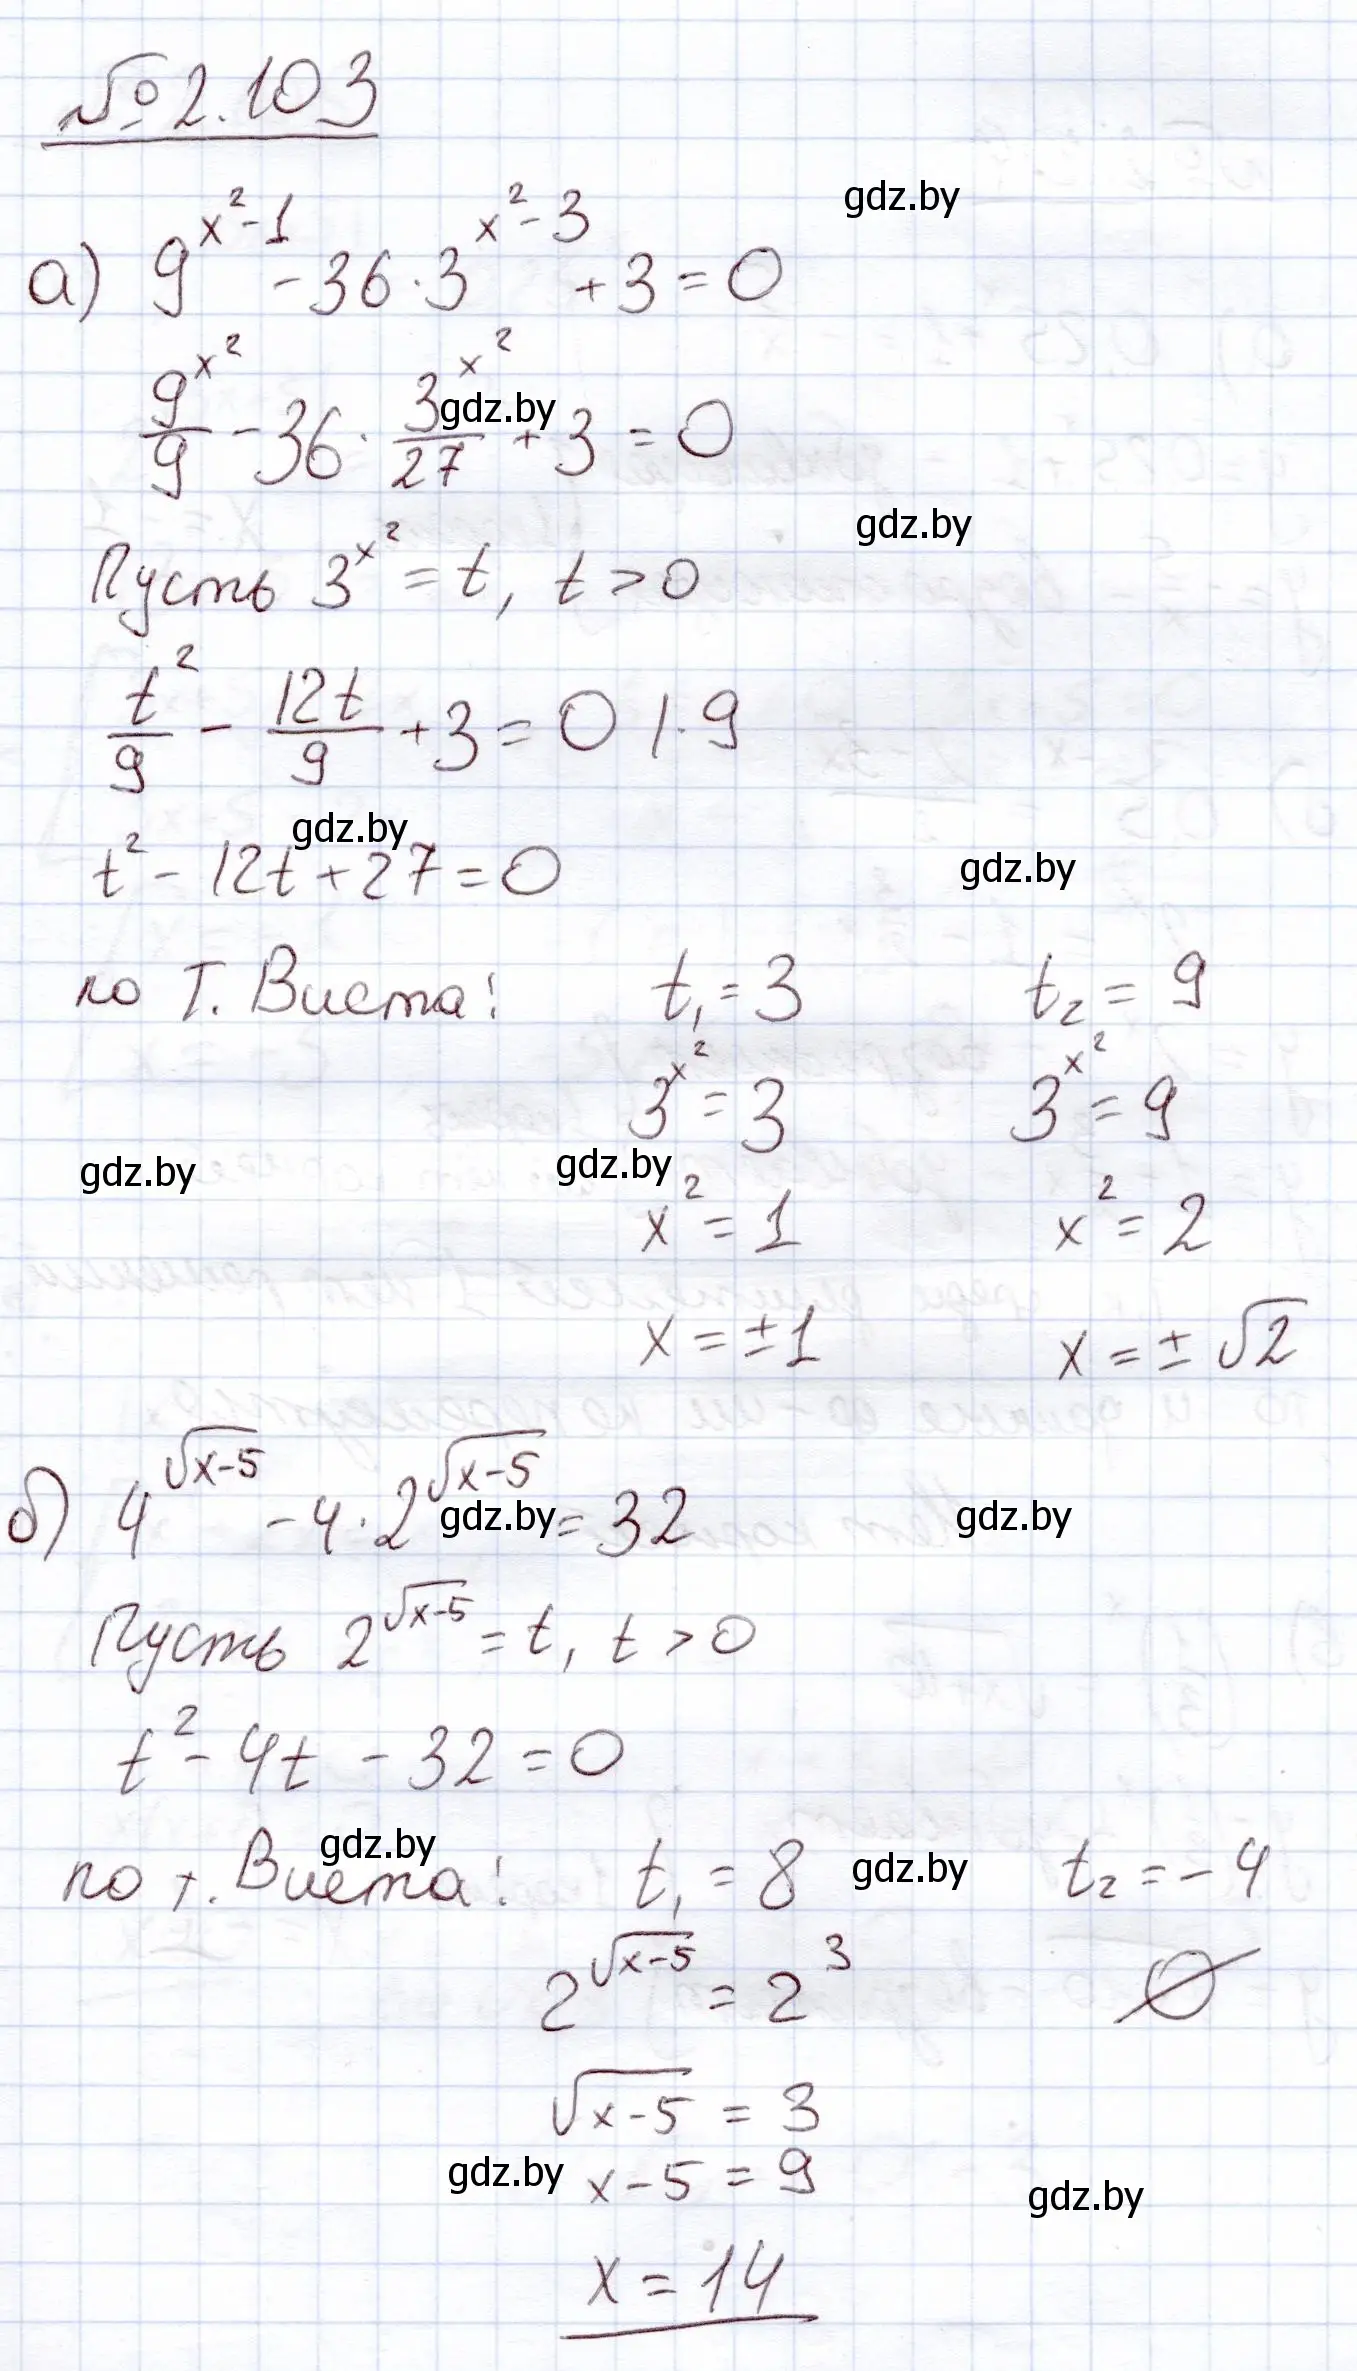 № 2.103
gdz.by
а) 9^(x²-1) - 36·3^(x²-3) + 3 = 0
9^(x²)/9 - 36 · 3^(x²)/27 + 3 = 0
gdz.by
gdz.by
Пусть 3^(x²) = t, t > 0
t²/9 - 12t/9 + 3 = 0 |·9
gdz.by
t² - 12t + 27 = 0
gdz.by
по Т. Виета: t₁ = 3 t₂ = 9
3^(x²) = 3 3^(x²) = 9
gdz.by gdz.by
x² = 1 x² = 2
x = ±1 x = ±√2
б) 4^(√(x-5)) - 4·2^(√(x-5)) = 32
gdz.by gdz.by
Пусть 2^(√(x-5)) = t, t > 0
t² - 4t - 32 = 0
gdz.by gdz.by
по т. Виета: t₁ = 8 t₂ = -4
2^(√(x-5)) = 2³ ∅
√(x-5) = 3
gdz.by
x - 5 = 9
gdz.by
x = 14